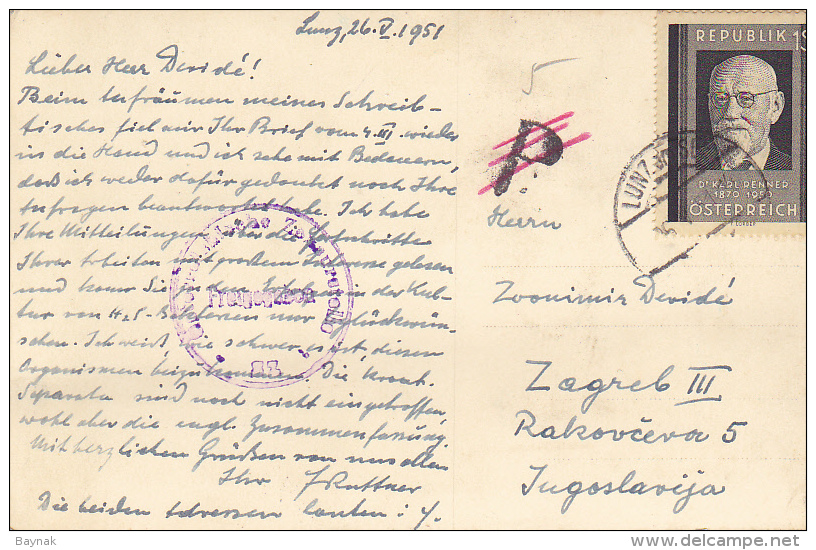 Lunz, 26.V.1951
Lieber Herr Devidé!
Beim Aufräumen meines Schreib-
tisches fiel mir Ihr Brief vom 4.III. wieder
in die Hand und ich sehe mit Bedauern,
daß ich weder dafür gedankt noch Ihre
Anfragen beantwortet habe. Ich habe
Ihre Mitteilungen über die Fortschritte
Ihrer Arbeiten mit großem Interesse gelesen
und kann Sie zu den Erfolgen in der Kul-
tur von H₂S-Bakterien nur beglückwün-
schen. Ich weiß wie schwer es ist, diesen
Organismen beizukommen. Die kroat.
Separata sind noch nicht eingetroffen,
wohl aber die engl. Zusammenfassung.
Mit herzlichen Grüßen von uns allen
Ihr F Ruttner
Die beiden Adressen lauten: ./.
5
P
REPUBLIK 1S
DR KARL RENNER
1870-1950
ÖSTERREICH
LUNZ
Österreichische Zensurstelle
Herrn
Zvonimir Devidé
Zagreb III
Rakovčeva 5
Jugoslavija
Baynak
delcampe.net